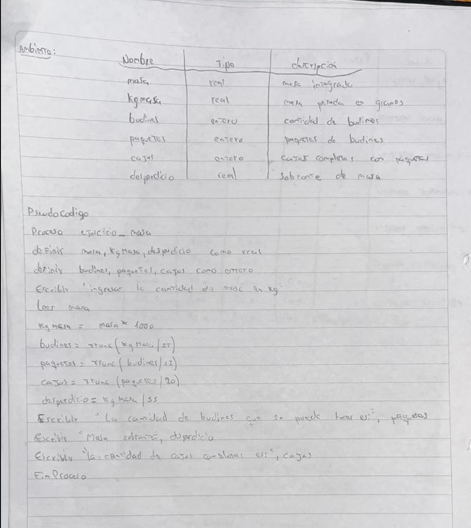 Ambiente:
Nombre Tipo descripcion
masa real masa integrada
Kgmasa real masa pasada en gramos
budines entero cantidad de budines
paquetes entero paquetes de budines
cajas entero cajas completas con paquetes
desperdicio real sobrante de masa
Pseudocodigo
Proceso ejercicio_masa
definir masa, Kgmasa, desperdicio como real
definir budines, paquetes, cajas como entero
Escribir "ingrese la cantidad de masa en Kg"
Leer masa
Kgmasa = masa * 1000
budines = trunc(Kgmasa/55)
paquetes = trunc(budines/12)
cajas = trunc(paquetes/20)
desperdicio = Kgmasa/55
Escribir "La cantidad de budines que se puede hacer es:", paquetes
Escribir "Masa sobrante, desperdicio
Escribir "la cantidad de cajas completas es:", cajas
FinProceso